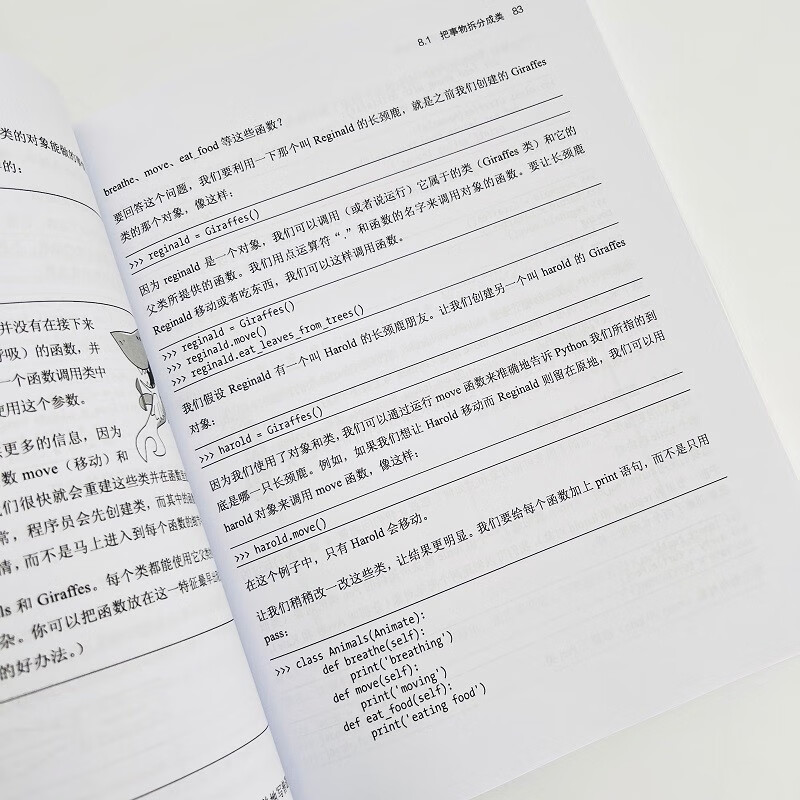 类的对象能做的事
的:
并没有在接下来
呼吸）的函数，并
一个函数调用类中
使用这个参数。
更多的信息，因为
数 move（移动）和
们很快就会重建这些类并在函数里
常，程序员会先创建类，而其中的函数
情，而不是马上进入到每个函数的细节
ls 和 Giraffes。每个类都能使用它父类
杂。你可以把函数放在这一特征最早出
的好办法。）
8.1 把事物拆分成类 83
breathe、move、eat_food 等这些函数？
要回答这个问题，我们要利用一下那个叫 Reginald 的长颈鹿，就是之前我们创建的 Giraffes
类的那个对象，像这样：
>>> reginald = Giraffes()
因为 reginald 是一个对象，我们可以调用（或者说运行）它属于的类（Giraffes 类）和它的
父类所提供的函数。我们用点运算符“.”和函数的名字来调用对象的函数。要让长颈鹿
Reginald 移动或者吃东西，我们可以这样调用函数。
>>> reginald = Giraffes()
>>> reginald.move()
>>> reginald.eat_leaves_from_trees()
我们假设 Reginald 有一个叫 Harold 的长颈鹿朋友。让我们创建另一个叫 harold 的 Giraffes
对象：
>>> harold = Giraffes()
因为我们使用了对象和类，我们可以通过运行 move 函数来准确地告诉 Python 我们所指的到
底是哪一只长颈鹿。例如，如果我们想让 Harold 移动而 Reginald 则留在原地，我们可以用
harold 对象来调用 move 函数，像这样：
>>> harold.move()
在这个例子中，只有 Harold 会移动。
让我们稍稍改一改这些类，让结果更明显。我们要给每个函数加上 print 语句，而不是只用
pass：
>>> class Animals(Animate):
def breathe(self):
print('breathing')
def move(self):
print('moving')
def eat_food(self):
print('eating food')